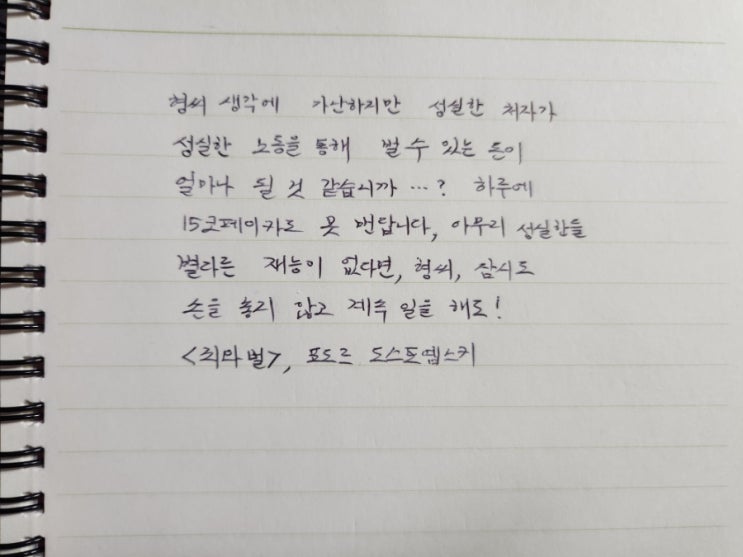 형씨 생각에 가난하지만 성실한 처자가
성실한 노동을 통해 벌 수 있는 돈이
얼마나 될 것 같습니까 …? 하루에
15코페이카도 못 번답니다, 아무리 성실한들
별다른 재능이 없다면, 형씨, 잠시도
손을 놀리 않고 계속 일을 해도!
<죄와 벌>, 표도르 도스토옙스키